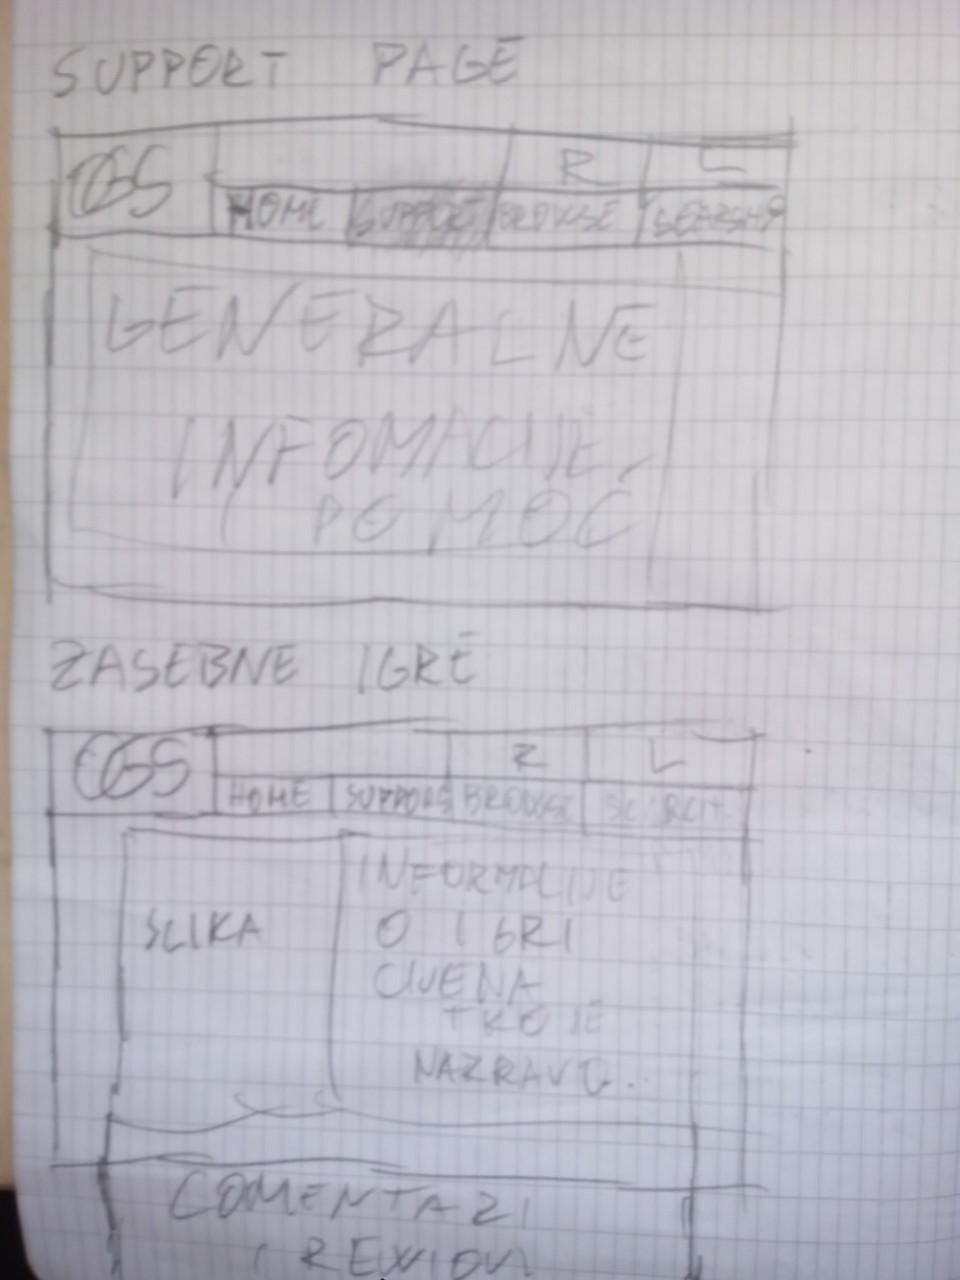 SUPPORT PAGE
OGS R L
HOME SUPPORT BROWSE
GENERALNE
INFOMACIJE
I POMOĆ
ZASEBNE IGRE
OGS R L
HOME SUPPORT BROWSE
SLIKA
INFORMACIJE
O IGRI
CIJENA
TKO JE
NAPRAVIO.
COMENTARI
I REVIOVI